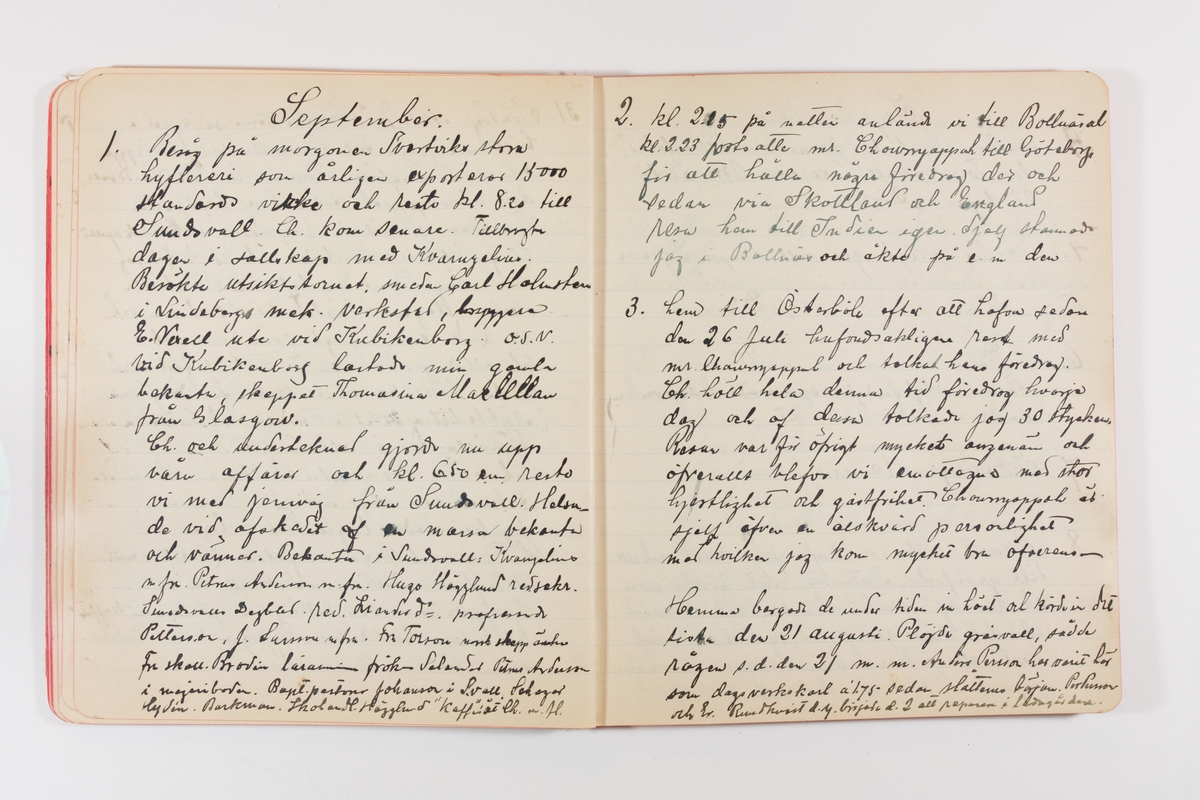 September.
1. Besåg på morgonen Svartviks stora
hyflereri som årligen exporterar 15000
standards virke och reste kl. 8.20 till
Sundsvall. Ch. kom senare. Tillbragte
dagen i sällskap med
Besökte utsiktstornet, smeden Carl Holmsten
i Lindebergs mek. verkstad,
E. Verell ute vid Kubikenborg o.s.v.
Vid Kubikenborg lastade min gamla
bekanta, skeppet Thomasina MacLellan
från Glasgow.
Ch. och undertecknad gjorde nu upp
våra affärer och kl. 6.50 em reste
vi med jernväg från Sundsvall. Helsa-
de vid afskedet af en massa bekanta
och vänner. Bekanta i Sundsvall:
m fru. Petrus Anderson m. fru. Hugo Hägglund redsekr.
Sundsvalls Dagblad. red. profeserande
Pettersson, J. Larsson m fru. Fru Torson norsk skepp
Fru skoll. Brodin lärarinna frök. Petrus Anderson
i mejeriboden. Bapt. pastorn Johanson i S.vall,
Hydén. Barkman. Hägglund "Kaffi" åt Ch. m. fl.
2. kl. 2.15 på natten anlände vi till Bollnäs
kl. 2.23 fortsatte mr. Chowryappah till Göteborg
för att hålla några föredrag der och
sedan via Skottland och England
resa hem till Indien igen. Sjelf stannade
jag i Bollnäs och åkte på e. m den
3. hem till Österböle efter att hafva sedan
den 26 Juli hufvudsakligen rest med
mr. Chowryappah och tolkat hans föredrag.
Ch. höll hela denna tid föredrag hvarje
dag och af dessa tolkade jag 30 stycken.
Resan var för öfrigt mycket angenäm och
öfverallt blefvo vi emottagna med stor
hjertlighet och gästfrihet. Chowryappah är
sjelf äfven en älskvärd personlighet
med hvilken jag kom mycket bra öfverens—
Hemma bergade de under tiden in höet och körde in det
sista den 21 augusti. Plöjde gräsvall, sådde
rågen s.d. den 21 m. m. Anders Persson har varit här
som dagsverkskarl á 1.75 sedan slåtterns början.
och Er. Rundkvist d.y. började d. 2 att reparera i